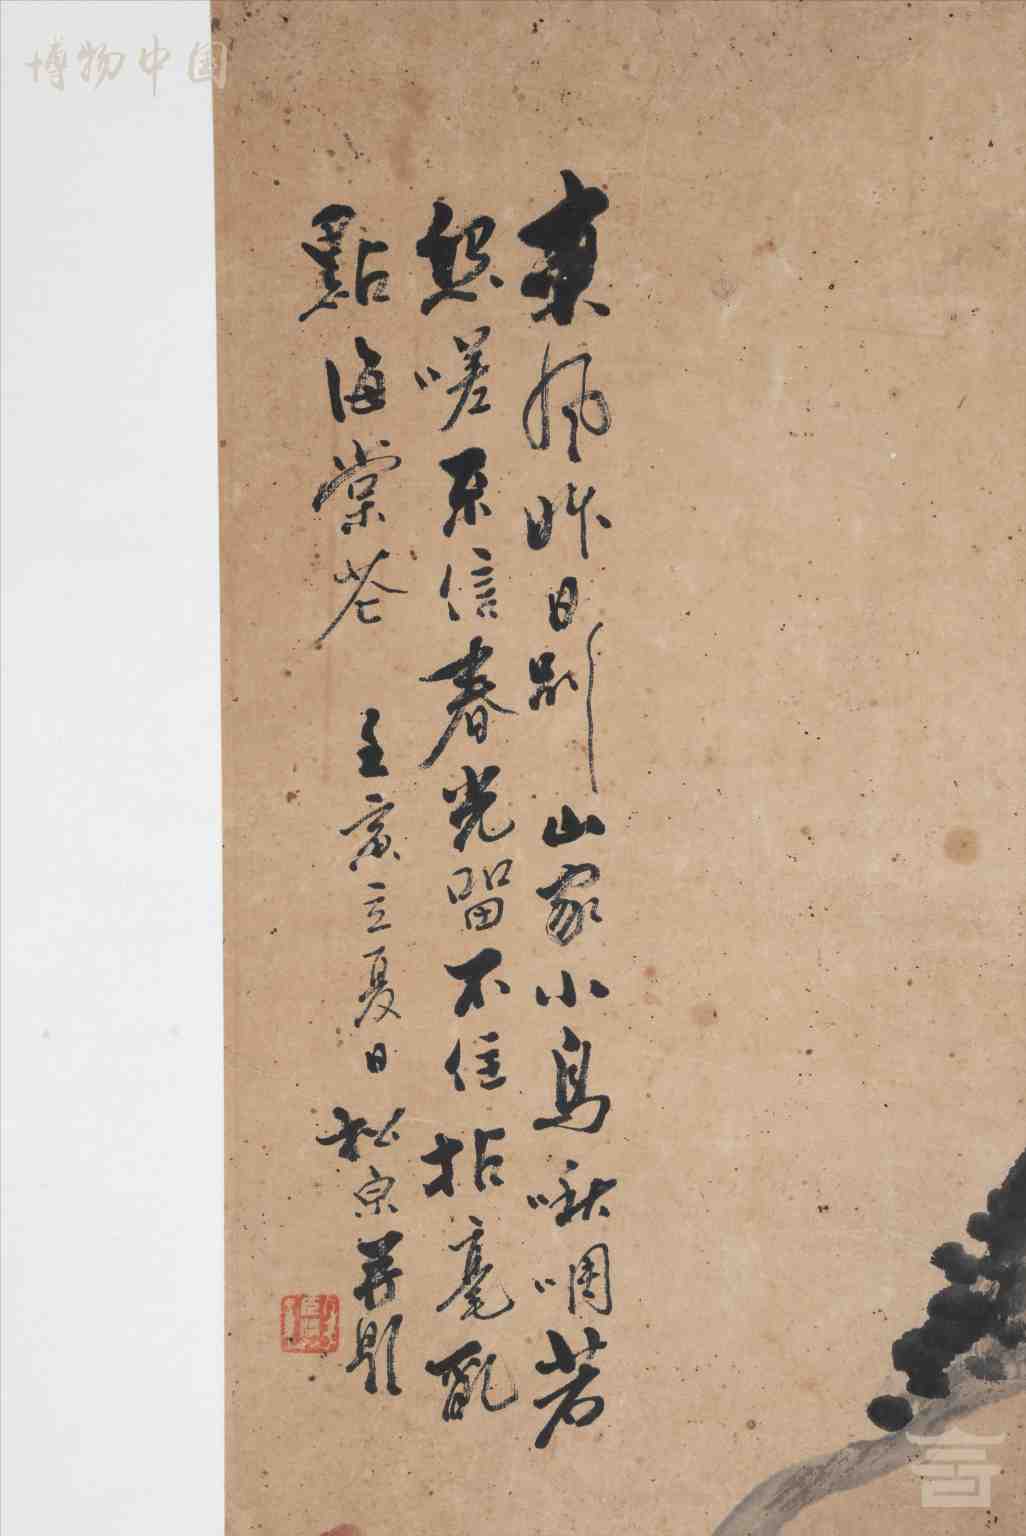 博物中国
東風昨日別山家小鳥啾啁若
怨嗟信春光留不住拈毫亂
點海棠花 壬寅立夏日 松泉并題